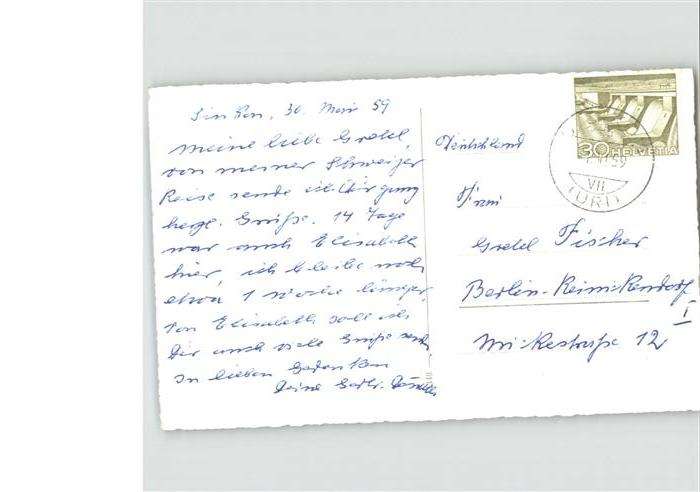 30. Mai 59
Meine liebe Gretel,
von meiner Schweizer
Reise sende ich Dir ganz
herzl. Grüße. 14 Tage
war auch Elisabeth
hier, ich bleibe noch
etwa 1 Woche länger.
Von Elisabeth soll ich
Dir auch viele Grüße
In lieben Gedenken
Deine
Deutschland
Frau
Gretel Fischer
Berlin-Reinickendorf
I
12
30 HELVETIA
59
VII